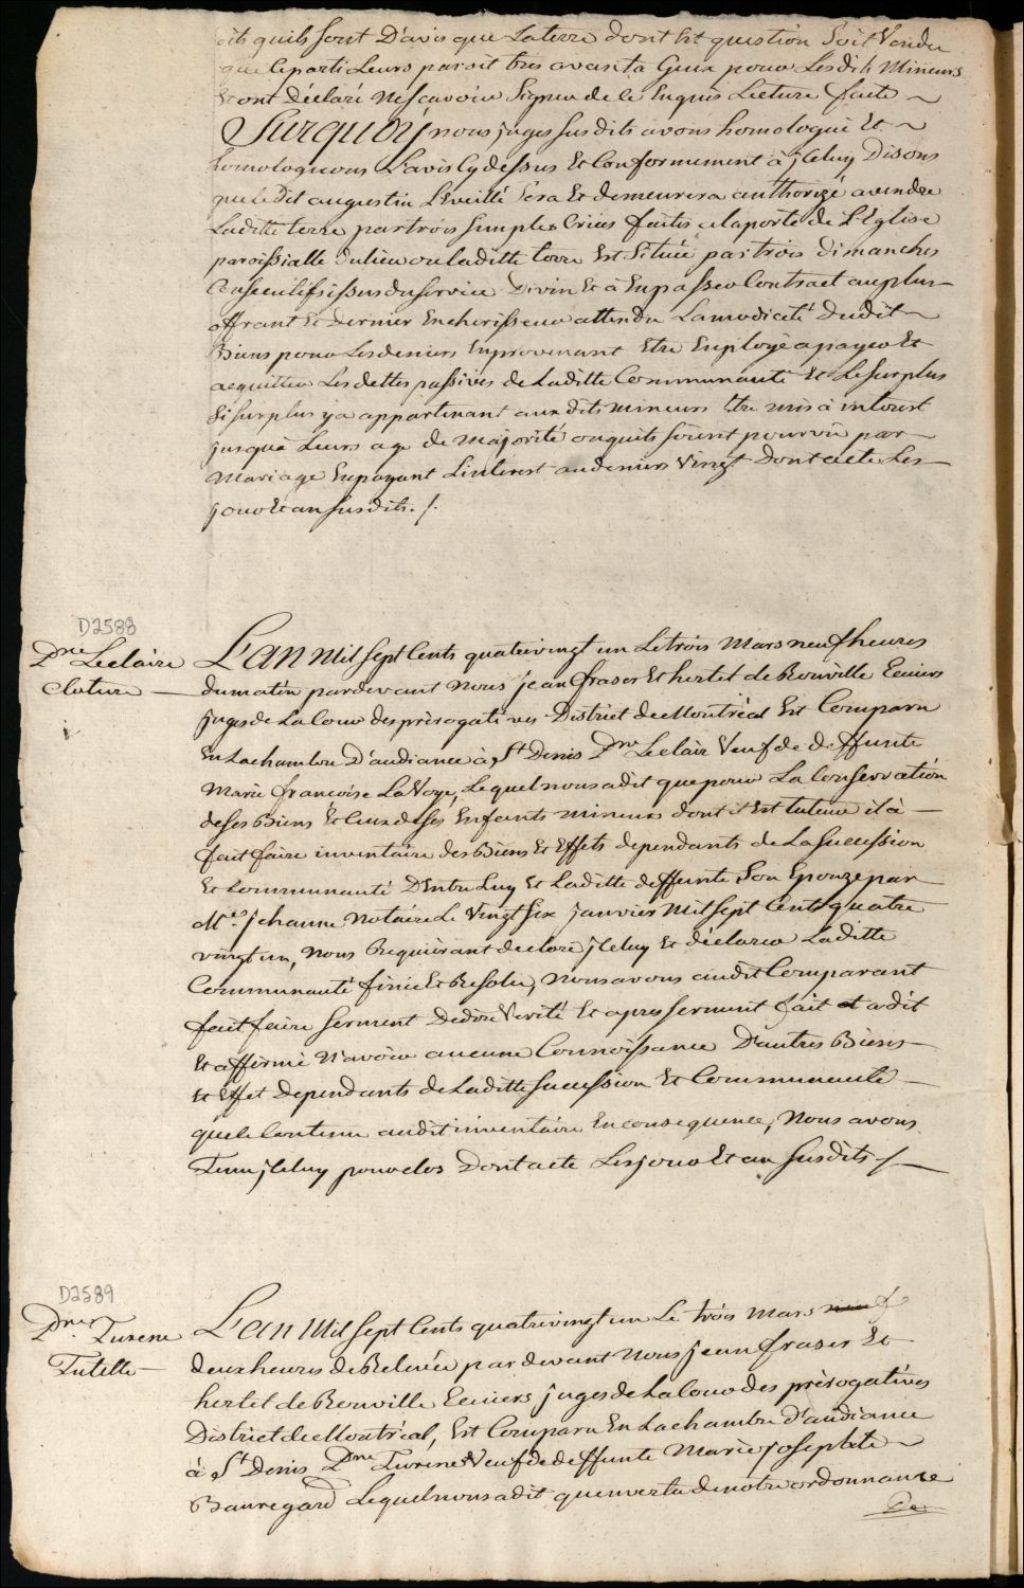 dits quils sont D'avis que La terre dont Est question Soit Vendu
que le parti Leurs paroit tres avanta Geux pour Lesdits Mineurs
Et ont Déclaré Ne sçavoir Signer de ce Enquis Lecture faite ~
Surquoy nous juges susdits avons homologué Et ~
homologuons L'avis Cy dessus Et Conformement à jCeluy Disons
que ledit augustin L'Eveillé Sera Et demeurera authorizé a vendre
Laditte terre par trois simples Criées faites a la porte de L'Eglise
paroissialle du lieu ou laditte terre Est Située par trois dimanches
Consecutifs issus du service Divin Et à En passer Contract au plus
offrant Et Dernier Encherisseur attendu La modicité dudit ~
Biens pour Les deniers En provenant Etre Employé a payer Et
acquitter Les dettes passives de Laditte Communauté Et Le surplus
Si surplus y a appartenant aux dits mineurs Etre mis à interest
jusqu'à Leurs age de majorité ou quils soient pourvû par
Mariage En payant L'interest au deniers Vingt Dont acte Les
jour Et an susdits ./.
D2588
Dne Leclaire
Cloture
L'an Mil Sept Cents quatrevingt un Le trois Mars neuf heures
du matin pardevant Nous jean fraser Et hertel de Rouville Ecuiers
juges de La Cour des prérogatives District de Montréal Est Comparu
En La chambre D'audiance à St Denis Dne Leclair Veuf de deffunte
Marie françoise La Voye, Lequel nous a dit que pour La Conservation
de ses Biens Et Ceux de ses Enfants mineurs dont il Est tuteur il à
fait faire inventaire des Biens Et Effets dependants de La Sucession
Et Communauté D'Entre Luy Et Laditte deffunte Son Epouze par
Me jehanne Notaire Le Vingt Six janvier Mil Sept Cents quatre
vingt un, Nous Requierant de clore jCeluy Et déclarer Laditte
Communauté finie Et Resolue, Nous avons audit Comparant
fait faire Serment De dire Verité Et apres serment fait et a dit
Et affirmé N'avoir aucune Connoissance D'autres Biens
Et Effet dependants de Laditte Sucession Et Communauté
que le Contenu audit inventaire En consequence, Nous avons
Tenu jCeluy pour clos Dont acte Les jour Et an susdits ./.
D2589
Dne Turene
Tutelle
L'an Mil Sept Cents quatrevingt un Le trois Mars neuf
deux heures de Relevée par devant Nous jean fraser Et
hertel de Rouville Ecuiers juges de La Cour des prérogatives
District de Montréal, Est Comparu En La chambre d'audiance
à St Denis Dne Turene Veuf de deffunte Marie josephte ~
Bauregard Lequel nous a dit qu'en vertu de notre ordonnance
De